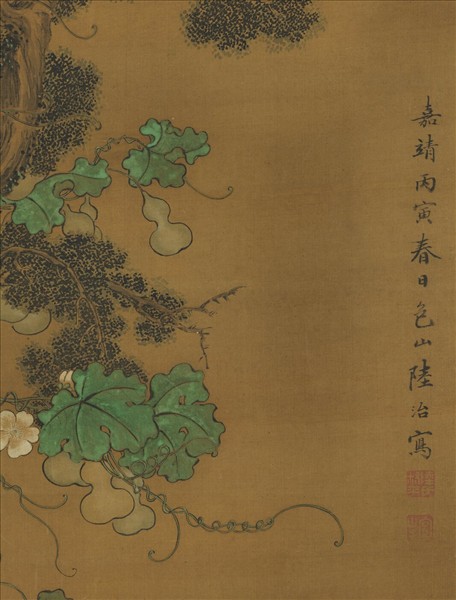 嘉靖丙寅春日包山陸治寫